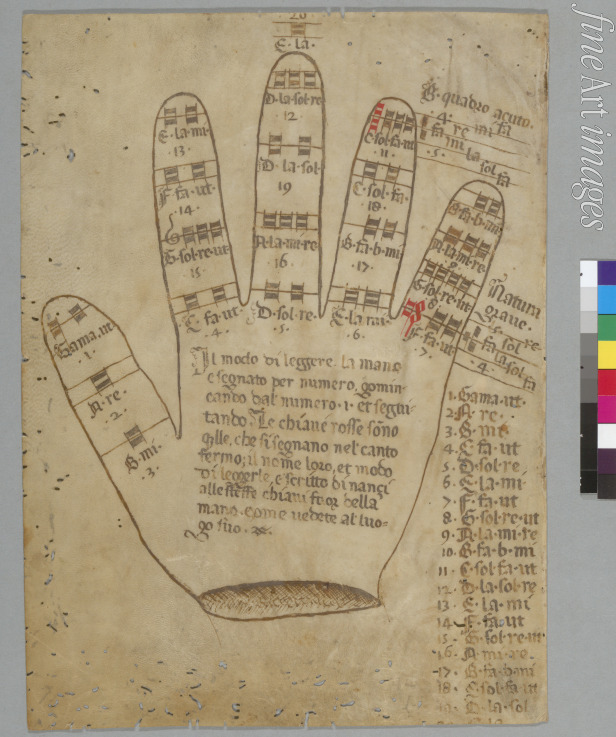 20
E·la·
D·la·sol·re
12
D·la·sol·
19
A·la·mi·re
·16·
D·sol·re·
·5·
E·la·mi·
·13·
F·fa·ut·
·14·
G·sol·re·ut·
·15·
C·fa·ut
·4·
C·sol·fa·ut
·11·
C·sol·fa·
·18·
B·fa·b·mi
·17·
E·la·mi·
·6·
B·fa·b·mi
A·la·mi·re
G·sol·re·ut
F·fa·ut
·7·
Gama·ut·
·1·
A·re·
·2·
B·mi·
·3·
B·quadro acuto·
·4· re mi fa
fa mi la sol fa
·5·
Natura
grave·
fa sol re
·4· la sol fa
Il modo di leggere la mano
e segnato per numero, gomin-
cando dal numero ·1· et segui-
tando· Le chiaui rosse sono
qlle, che si segnano nel canto
fermo; il nome loro, et modo
di leggerle, e scritto dinanzi
alle stesse chiaui fuor della
mano· come uedete al luo-
go suo·
1· Gama·ut·
2· A·re·
3· B·mi
4· C·fa·ut
5· D·sol·re
6· E·la·mi
7· F·fa·ut
8· G·sol·re·ut
9· A·la·mi·re
10· B·fa·b·mi
11· C·sol·fa·ut
12· D·la·sol·re
13· E·la·mi
14· F·fa·ut
15· G·sol·re·ut
·16· A·mi·re·
·17· B·fa·b·mi
18· C·sol·fa·ut
19· D·la·sol
E·la
fineArt images